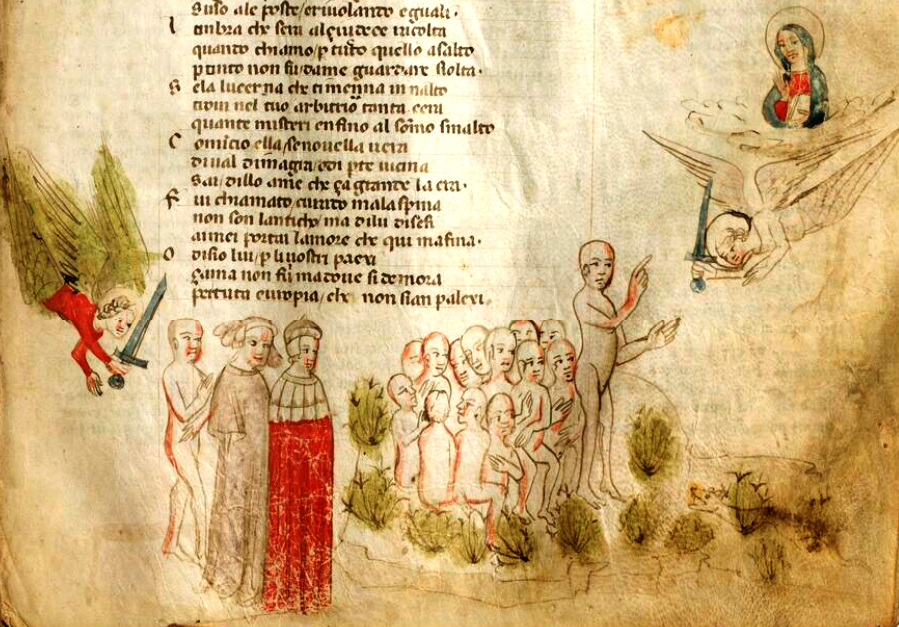 suso ale poste / rivolando eguali.
L ombra che sera al giudece ricolta
quando chiamo / p tuto quello asalto
punto non fu dame guardare sciolta.
S ela lucerna che timenna in nalto
trovi nel tuo arbitrio tanta cera
quante misteri enfino al somo smalto
C omicio ella / se novella vera
dival dimagra / o di pte vicina
sai / dillo ame che ça grande la era.
F ui chiamato currado malaspina
non son lanticho / ma dilui disesi
ai miei portai lamore che qui rafina.
O dissio lui / p li vostri paexi
çamai non fu ma dove si demora
p tuta europia / che non sian palexi.